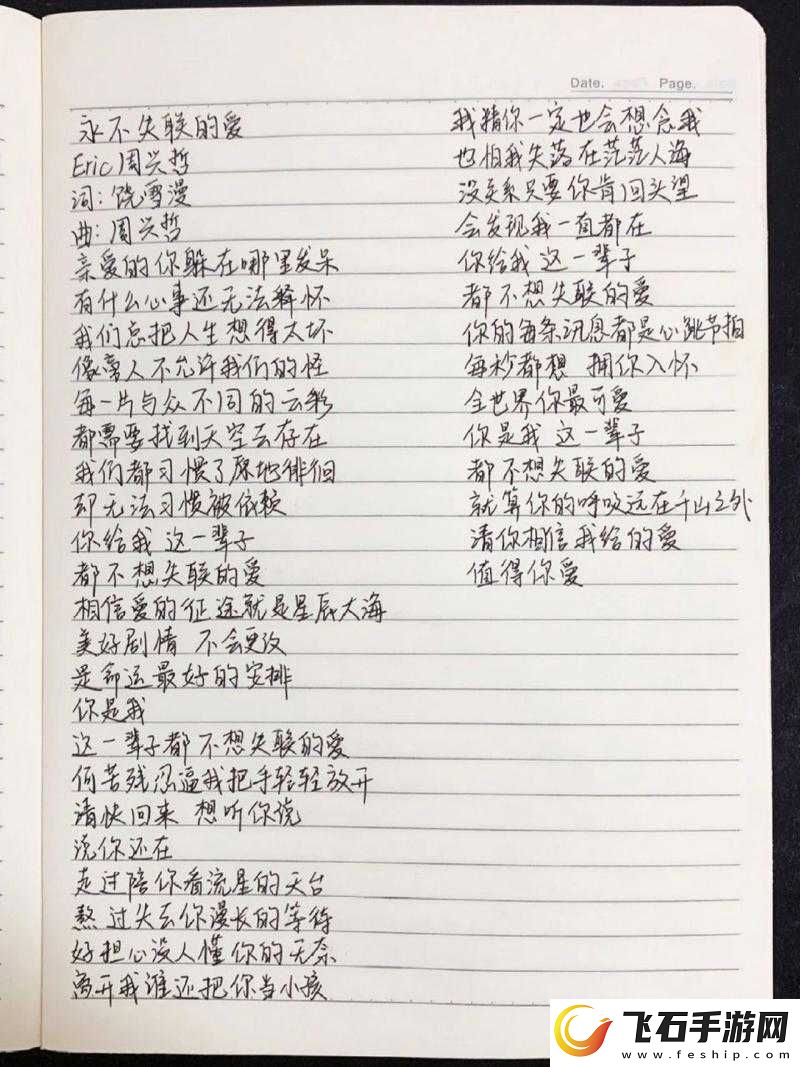 Date.
Page.
永不失联的爱
Eric周兴哲
词:饶雪漫
曲:周兴哲
亲爱的你躲在哪里发呆
有什么心事还无法释怀
我们总把人生想得太坏
像旁人不允许我们的怪
每一片与众不同的云彩
都需要找到天空去存在
我们都习惯了原地徘徊
却无法习惯被依赖
你给我 这一辈子
都不想失联的爱
相信爱的征途就是星辰大海
美好剧情 不会更改
是命运最好的安排
你是我
这一辈子都不想失联的爱
何苦残忍逼我把手轻轻放开
请快回来 想听你说
说你还在
走过陪你看流星的天台
熬过失去你漫长的等待
好担心没人懂你的无奈
离开我谁还把你当小孩
我猜你一定也会想念我
也怕我失落在茫茫人海
没关系只要你肯回头望
会发现我一直都在
你给我 这一辈子
都不想失联的爱
你的每条讯息都是心跳节拍
每秒都想 拥你入怀
全世界你最可爱
你是我 这一辈子
都不想失联的爱
就算你的呼吸远在千山之外
请你相信我给的爱
值得你爱
飞石手游网
www.feship.com